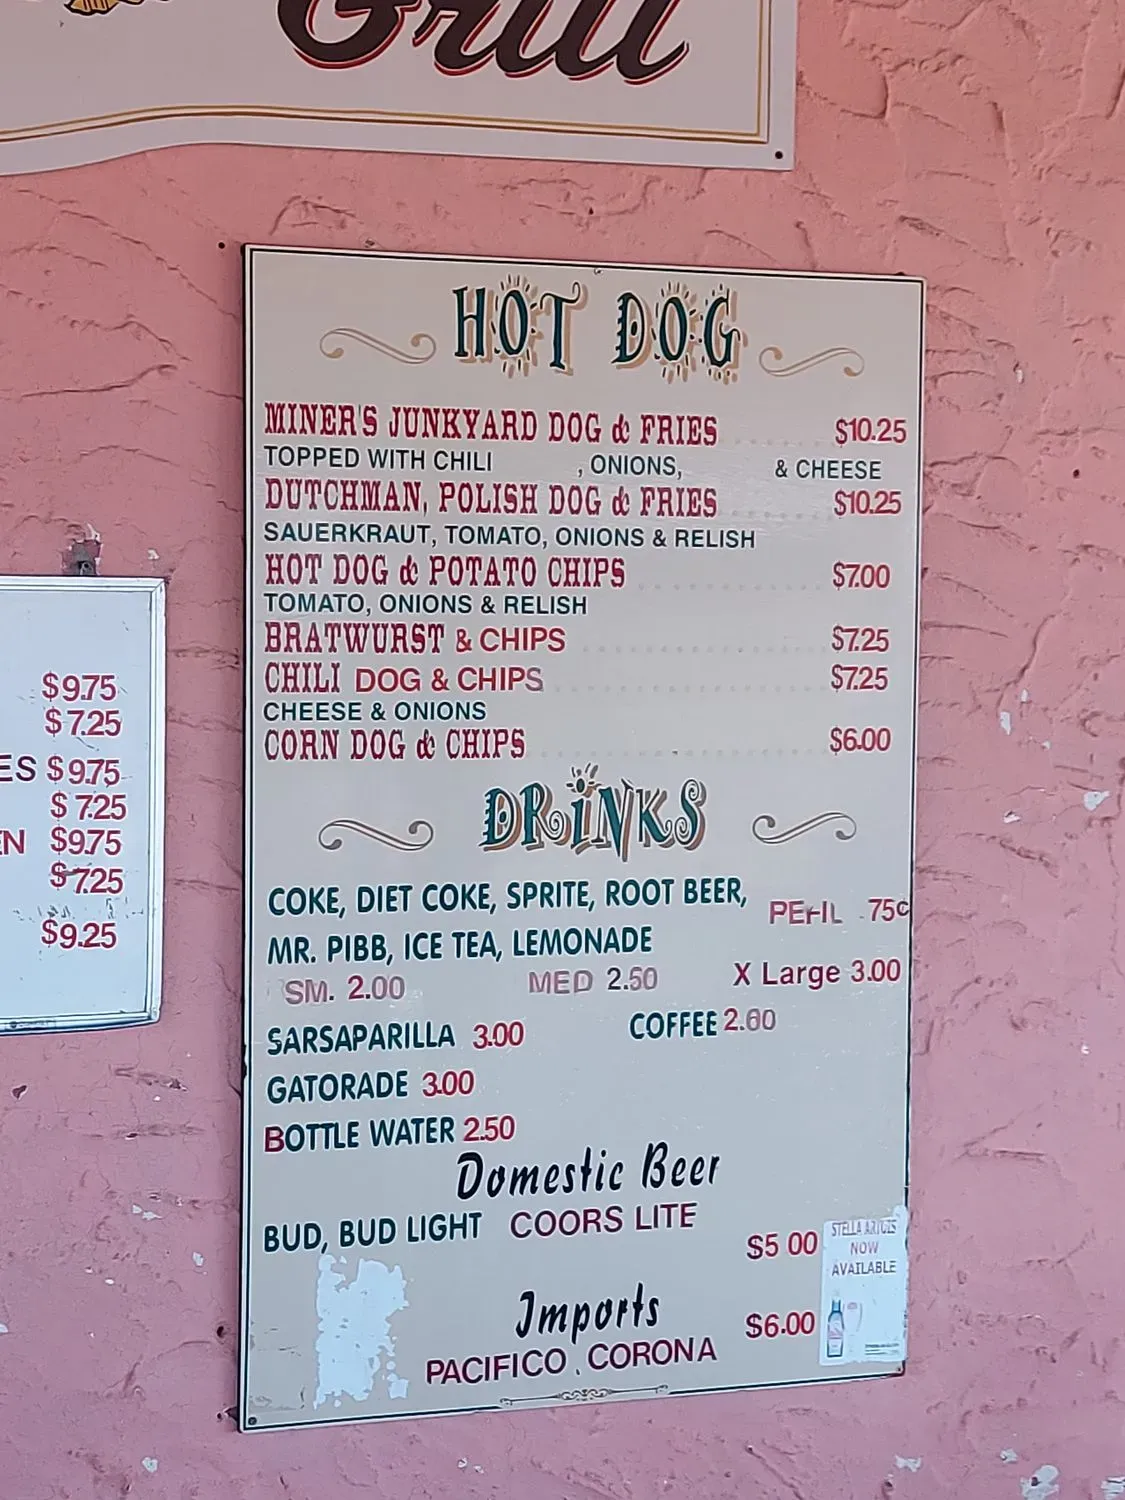 Grill
HOT DOG
MINER'S JUNKYARD DOG & FRIES $10.25
TOPPED WITH CHILI , ONIONS, & CHEESE
DUTCHMAN, POLISH DOG & FRIES $10.25
SAUERKRAUT, TOMATO, ONIONS & RELISH
HOT DOG & POTATO CHIPS $7.00
TOMATO, ONIONS & RELISH
BRATWURST & CHIPS $7.25
CHILI DOG & CHIPS $7.25
CHEESE & ONIONS
CORN DOG & CHIPS $6.00
DRINKS
COKE, DIET COKE, SPRITE, ROOT BEER,
75¢
MR. PIBB, ICE TEA, LEMONADE
SM. 2.00 MED 2.50 X Large 3.00
SARSAPARILLA 3.00 COFFEE
GATORADE 3.00
BOTTLE WATER 2.50
Domestic Beer
BUD, BUD LIGHT COORS LITE
$5 00
Imports
$6.00
PACIFICO , CORONA
STELLA ARTOIS
NOW
AVAILABLE
$9.75
$7.25
ES $9.75
$7.25
EN $9.75
$7.25
$9.25